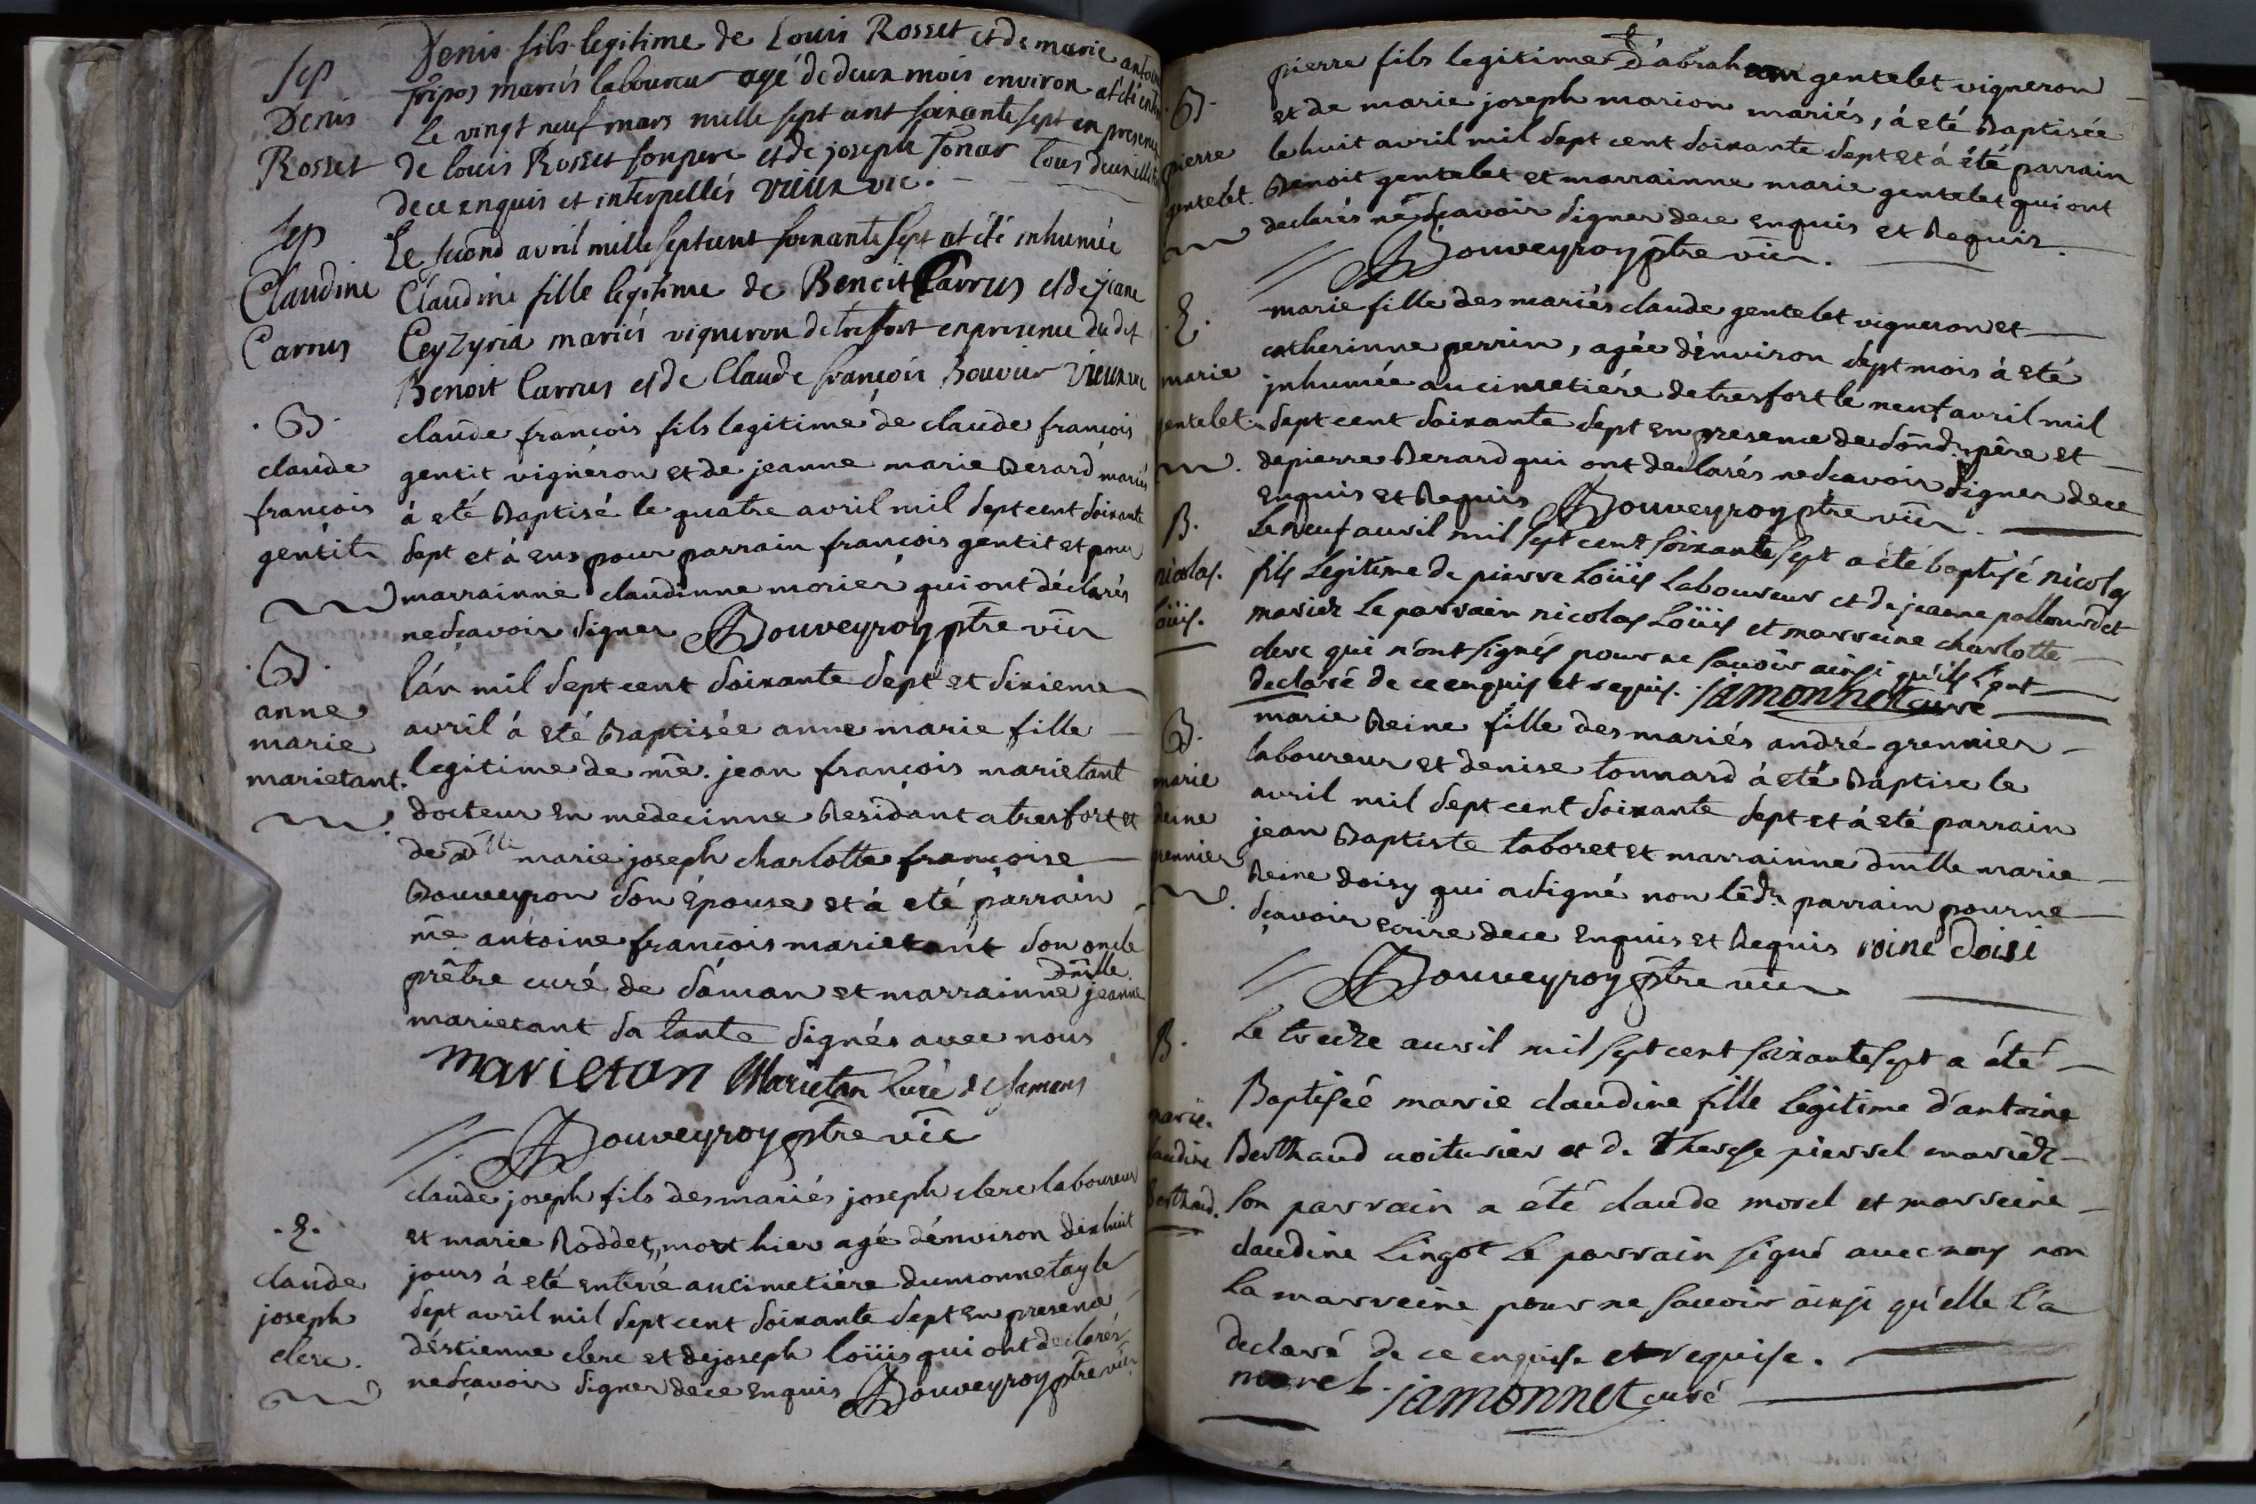 Sep
Denis
Rosset
Denis fils legitime de Louis Rosset et de marie
mariés laboureur agé de deux mois environ at été
Le vingt neuf mars mille sept cent soixante sept en presence
de louis Rosset son pere et de joseph Tonar tous deux
de ce enquis et interpellés vieux vic.
Sep
Claudine
Carrus
Le second avril mille sept cent soixante sept at été inhumée
Claudine fille legitime de Benoit Carrus et de jeane
Ceyzyria mariés vigneron de trefort en presence du dit
Benoit Carrus et de Claude françois Bouvier vieux vic
.B.
claude
françois
gentit
claude françois fils legitime de claude françois
gentit vigneron et de jeanne marie Berard mariés
à eté Baptisé le quatre avril mil sept cent soixante
sept et à eus pour parrain françois gentit et pour
marrainne claudinne morier qui ont déclarés
ne sçavoir signer Bouveyron ptre vic
.B.
anne
marie
marietant.
l'an mil sept cent soixante sept et sixieme
avril à eté Baptisée anne marie fille
legitime de me. jean françois marietant
docteur en medecinne Residant a tresfort et
de delle marie joseph charlotte françoise
Bouveyron son épouse et à eté parrain
me antoine françois marietant son oncle
prêtre curé de saman et marrainne dmlle. jeanne
marietant sa tante signés avec nous
marietan Marietan curé de samans
Bouveyron ptre vic
.E.
claude
joseph
clerc.
claude joseph fils des mariés joseph clerc laboureur
et marie Roddet, mort hier agé d'environ dix huit
jours à eté enterré au cimetière du monnetay le
sept avril mil sept cent soixante sept en presence
d'estienne clerc et de joseph loüis qui ont declarés
ne sçavoir signer de ce enquis Bouveyron ptre vic
.B.
pierre
gentelet.
pierre fils legitime d'abraham gentelet vigneron
et de marie joseph marion mariés, à eté Baptisée
le huit avril mil sept cent soixante sept et à été parrain
Benoit gentelet et marrainne marie gentelet qui ont
declarés ne sçavoir signer de ce enquis et Requis.
Bouveyron ptre vic.
.E.
marie
gentelet
marie fille des mariés claude gentelet vigneron et
catherinne perrin, agée d'environ sept mois à eté
inhumée au cimetiére de tresfort le neuf avril mil
sept cent soixante sept en presence de sond. pêre et
de pierre Berard qui ont declarés ne sçavoir signer de ce
enquis et Requis Bouveyron ptre vic.
B.
nicolas.
loüis.
Le neuf auvril mil sept cent soixante sept a été baptisé nicolas
fils Legitime de pierre Loüis Laboureur et de jeanne
mariez Le parrain nicolas Loüis et marreine charlotte
clerc qui n'ont signés pour ne savoir ainsi qu'ils l'ont
declaré de ce enquis et requis. jamonnet curé
B.
marie
Reine
grennier
marie Reine fille des mariés andré grennier
laboureur et denise tonnard à eté Baptise le
avril mil sept cent soixante sept et à eté parrain
jean Baptiste taboret et marrainne dmlle marie
Reine doisy qui a signé non led. parrain pour ne
sçavoir ecrire de ce enquis et Requis reine doisi
Bouveyron ptre vic
B.
marie.
claudine
Berthaud.
Le treize auvril mil sept cent soixante sept a été
Baptisée marie claudine fille legitime d'antoine
Berthaud voiturier et de Therese pierrel mariéz
son parrain a été claude morel et marreine
claudine Lingot Le parrain signé avec nous non
La marreine pour ne savoir ainsi qu'elle l'a
declaré de ce enquise et requise.
morel. jamonnet curé